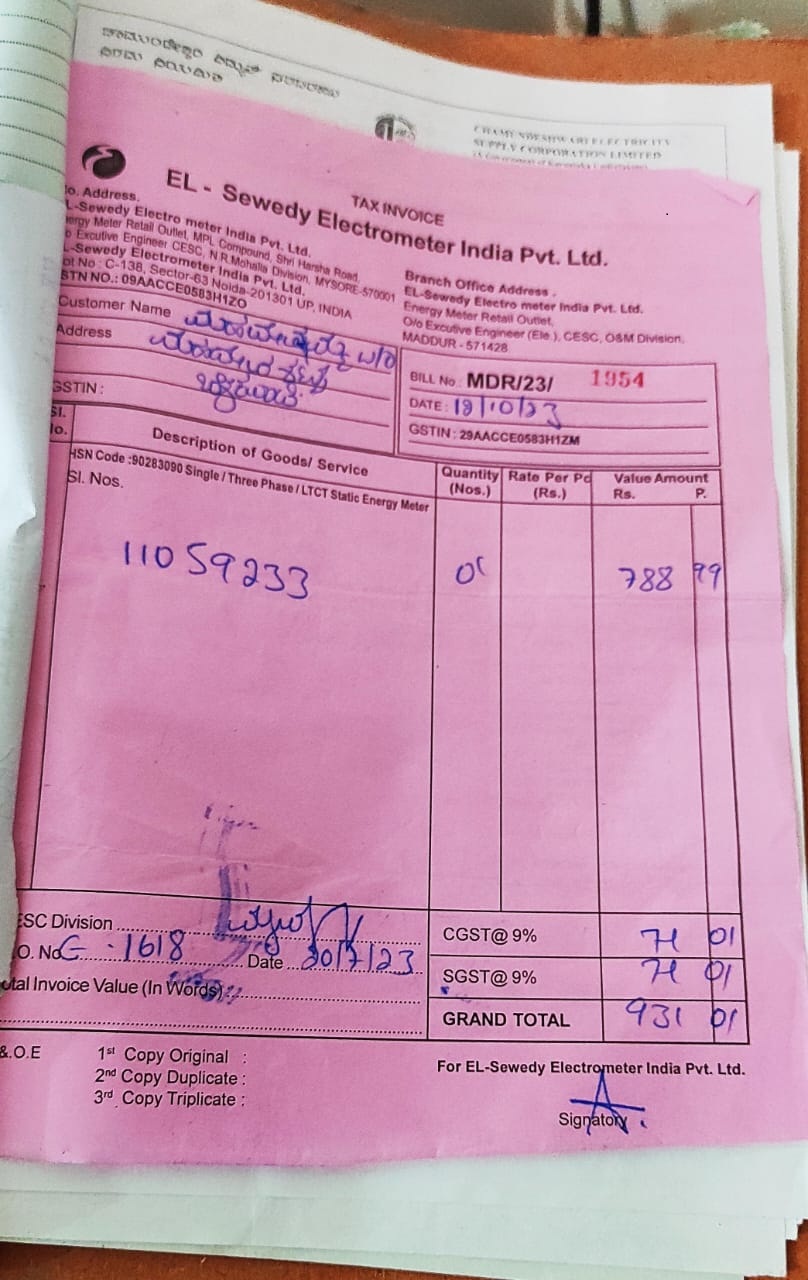 TAX INVOICE
EL - Sewedy Electrometer India Pvt. Ltd.
o. Address.
L-Sewedy Electro meter India Pvt. Ltd.
ergy Meter Retail Outlet, MPL Compound, Shri Harsha Road,
o Excutive Engineer CESC, N.R.Mohalla Division, MYSORE-570001
-Sewedy Electrometer India Pvt. Ltd.
ot No : C-138, Sector-63 Noida-201301 UP, INDIA
STN NO.: 09AACCE0583H1ZO
Branch Office Address .
EL-Sewedy Electro meter India Pvt. Ltd.
Energy Meter Retail Outlet,
O/o Excutive Engineer (Ele.), CESC, O&M Division,
MADDUR - 571428
Customer Name W/O
Address
GSTIN :
BILL No : MDR/23/ 1954
DATE : 19/10/23
GSTIN : 29AACCE0583H1ZM
Sl. No. Description of Goods/ Service Quantity (Nos.) Rate Per Pc (Rs.) Value Amount Rs. P.
HSN Code :90283090 Single / Three Phase / LTCT Static Energy Meter
Sl. Nos.
11059233 01 788 99
ESC Division
O. No G - 1618 Date 20/7/23
otal Invoice Value (In Words) :
CGST@ 9% 71 01
SGST@ 9% 71 01
GRAND TOTAL 931 01
&.O.E
1st Copy Original :
2nd Copy Duplicate :
3rd Copy Triplicate :
For EL-Sewedy Electrometer India Pvt. Ltd.
Signatory
CHAMUNDESHWARI ELECTRICITY
SUPPLY CORPORATION LIMITED